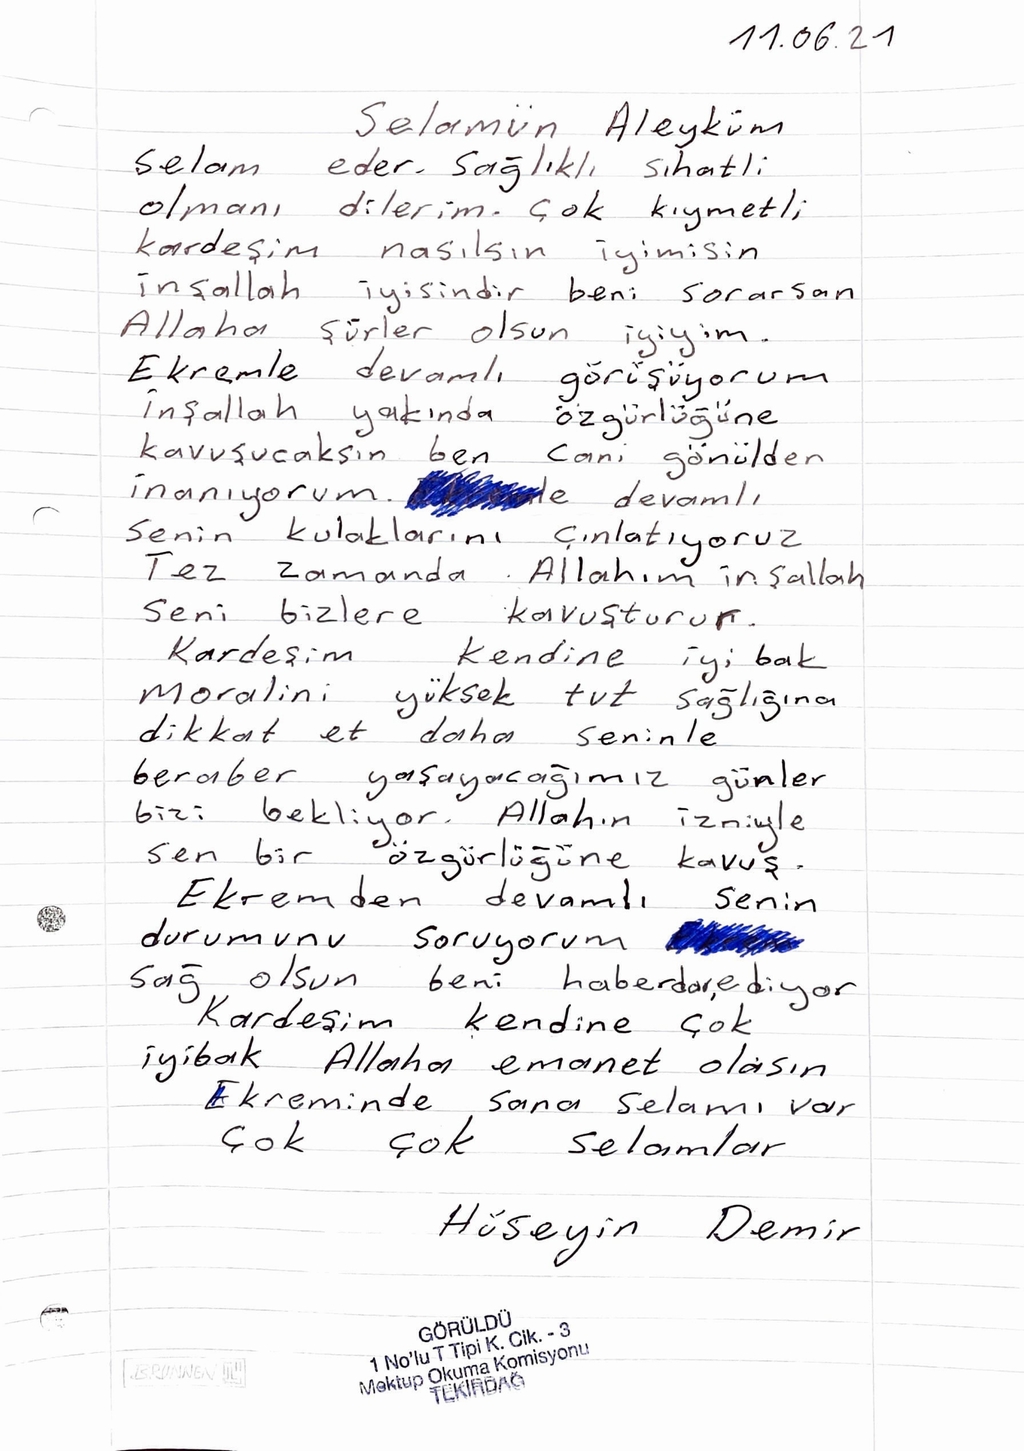 11.06.21
Selamün Aleyküm
Selam eder. Sağlıklı sıhatli
olmanı dilerim. Çok kıymetli
kardeşim nasılsın iyimisin
inşallah iyisindir beni sorarsan
Allaha şürler olsun iyiyim.
Ekremle devamlı görüşüyorum
inşallah yakında özgürlüğüne
kavuşucaksın ben cani gönülden
inanıyorum. le devamlı
senin kulaklarını çınlatıyoruz
Tez zamanda. Allahım inşallah
seni bizlere kavuşturur.
Kardeşim kendine iyi bak
moralini yüksek tut sağlığına
dikkat et daha seninle
beraber yaşayacağımız günler
bizi bekliyor. Allahın izniyle
sen bir özgürlüğüne kavuş.
Ekremden devamlı senin
durumunu soruyorum
sağ olsun beni haberdar ediyor
Kardeşim kendine çok
iyibak Allaha emanet olasın
Ekreminde sana selamı var
Çok çok selamlar
Hüseyin Demir
GÖRÜLDÜ
1 No'lu T Tipi K. Cik. - 3
Mektup Okuma Komisyonu
TEKİRDAĞ
BRUNNEN